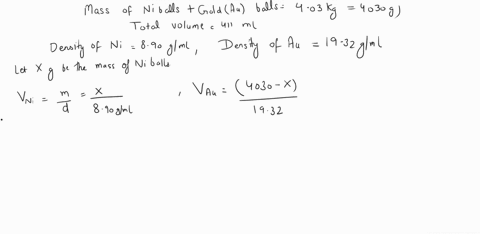 Mass of Ni balls + Gold(Au) balls = 4.03 Kg = 4030 g
Total volume = 411 ml
Density of Ni = 8.90 g/ml, Density of Au = 19.32 g/ml
Let X g be the mass of Ni balls
V_Ni = m/d = X/8.90 g/ml , V_Au = (4030 - X)/19.32